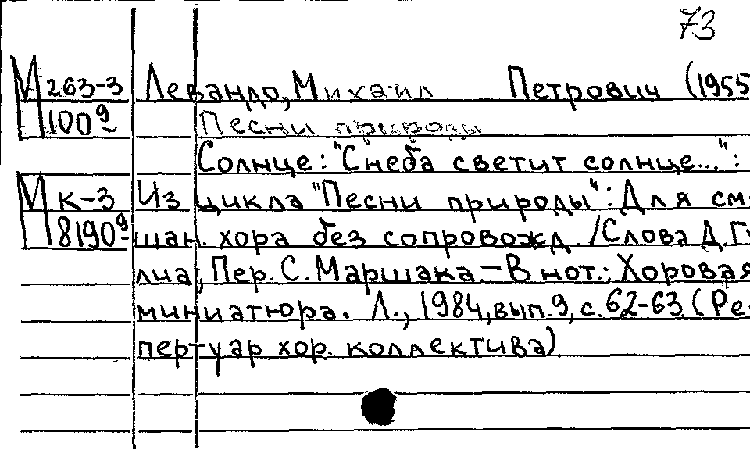 73
М 263-3 Левандо, Михаил Петрович (1955
П 100 9 Песни природы
Солнце: "С неба светит солнце...":
М к-3 Из цикла "Песни природы": Для сме-
П 8190 9 шан. хора без сопровожд. / Слова Д. Г
лиа; Пер. С. Маршака — В нот.: Хоровая
миниатюра. Л., 1984, вып. 9, с. 62-63 (Ре-
пертуар хор. коллектива)